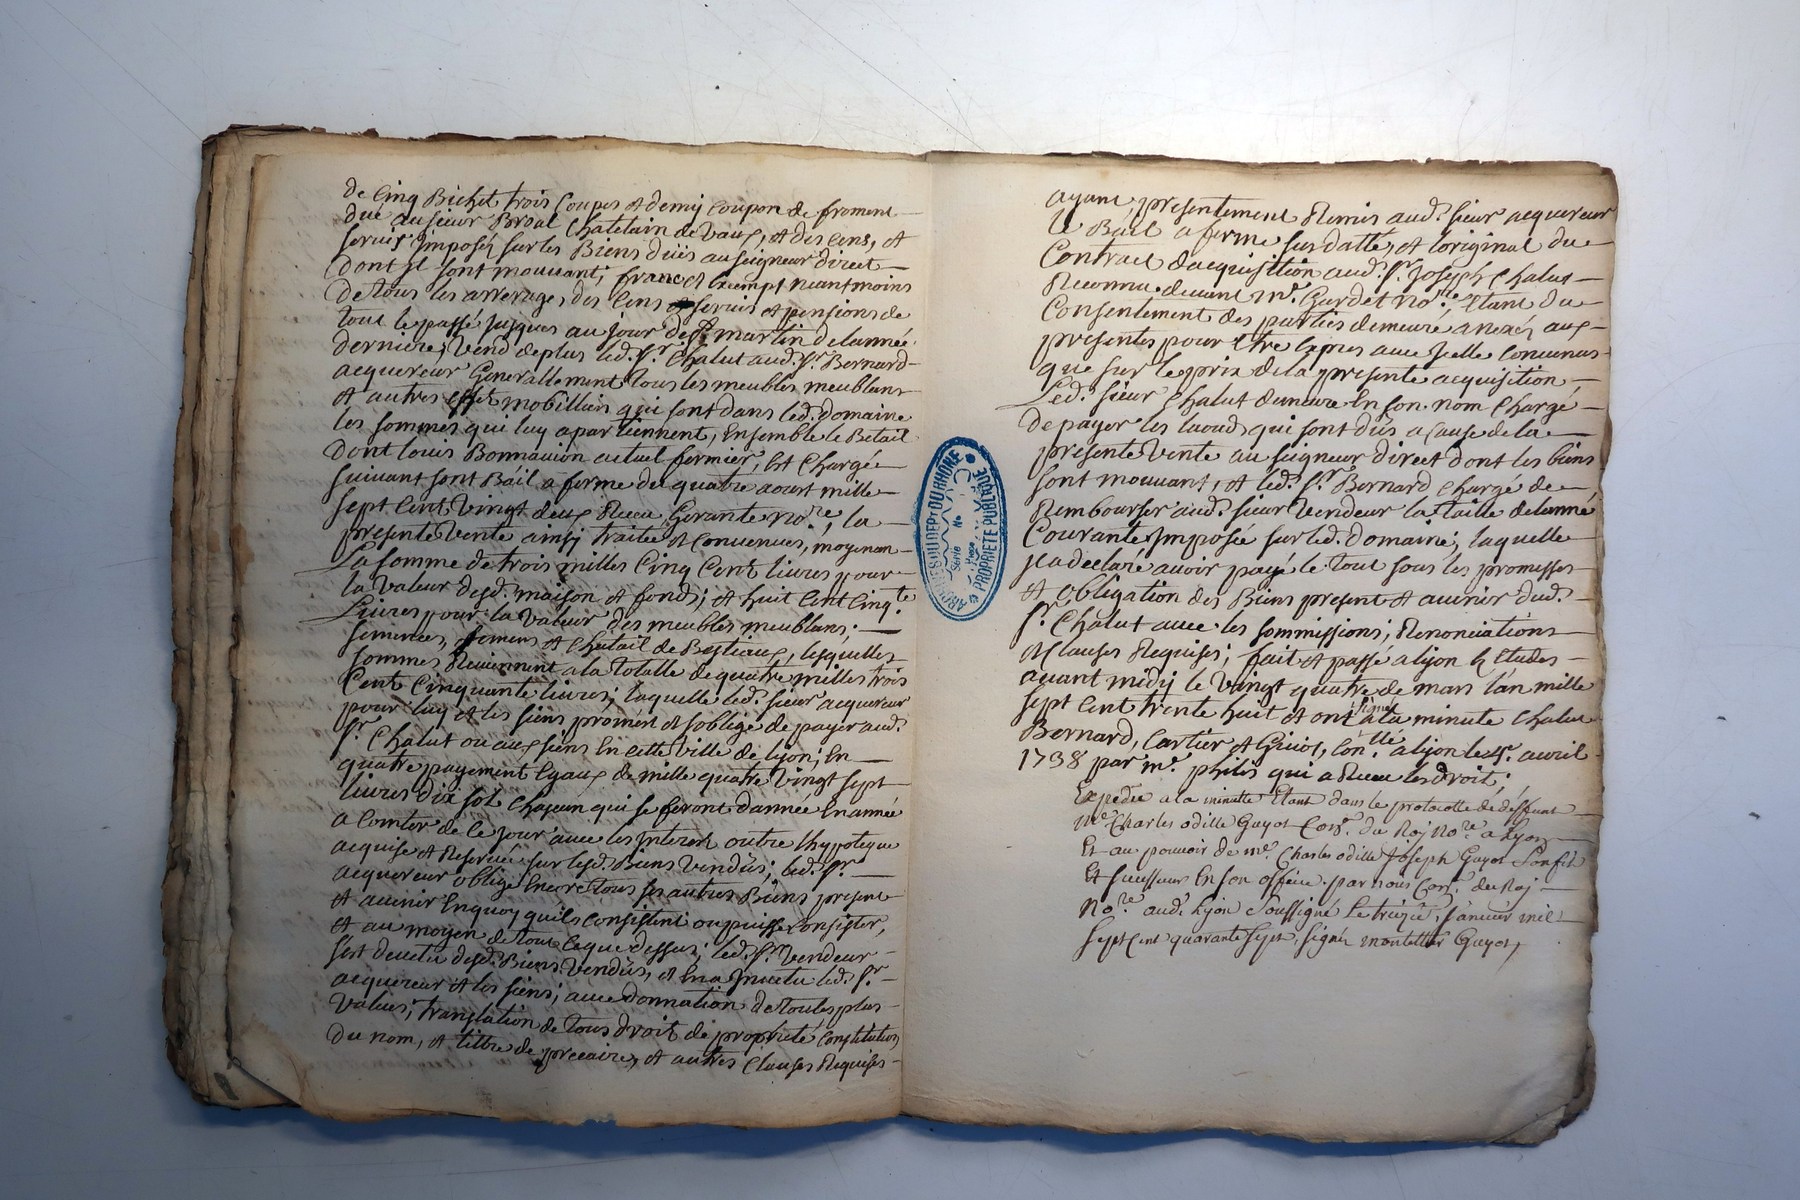 de Cinq Bichet trois Coupes et demy coupon de froment
dué au sieur Broal Chatelain de Vaux, et des Cens, et
servis Imposés sur les Biens dües au seigneur direct
Dont Jl sont mouvant; franc et Exempt neantmoins
De tous les arrerages des Cens et servis et pensions de
tout le passé jusques au jour de St martin de lanné
derniere; Vend de plus led. Sr. Chalut aud. Sr Bernard
acquereur Generallement tous les meubles meublans
et autres effet mobilliairs qui sont dans led. domaine
les sommes qui luy apartiennent, Ensemble le Betail
Dont louis Bonnavion actuel fermier, Est Chargée
suivant sont Báil a ferme du quatre aoust mille
sept Cent Vingt deux Receu Gerante nore, la
presente Vente ainsy traitée et Convenues, moyenan
La somme de trois milles Cinq Cent livres pour
la Valeur desd. maison et fonds; et huit Cent Cinqte
Livres pour la Valeur des meubles meublans;
semences, et Chetail de Bestiaux, lesquelles
sommes Reviennent a la Totalle de quatre milles trois
Cent Cinquante livres; laquelle led. sieur acquereur
pour luy et les siens promet et soblige de payer aud.
Sr. Chalut ou aux siens En cette Ville de lyon; En
quatre payement Egaux de mille quatre Vingt sept
livres dix sol Chaqun qui se feront dannée En année
a Comter de Ce Jour avec les Interest outre lhypoteque
acquise et Reservée sur lesd. Biens Vendus; led. Sr.
acquereur oblige Encore tous ses autres Biens present
et avenir Enquoy quils Consistent ou puisse Consister,
et au moyen de tout Ceque dessus; led. Sr. Vendeur
s'est devetu desd. Biens Vendus, et En a Jnvetu led. Sr.
acquereur et les siens; avec donnation de toutes plus
Values; translation de tous droit de proprieté, Constitution
du nom, et tittre de precaire, et autres Clauses Requises
ayant presentement Remis aud. sieur acquereur
le Báil a ferme susdatté, et loriginal du
Contract dacquisition aud. Sr. Joseph Chalut
Reconnu devant me. Gardet nore, Etant du
Consentement des parties demeuré anexés aux
presentes pour Etre Expres avec Jcelle Convenus
que sur le prix de la presente acquisition
Led. sieur Chalut demeure En son nom Chargé
de payer les laouds qui sont dus a Cause de la
presente Vente au seigneur direct dont les biens
sont mouvant, et led. Sr. Bernard Chargé de
Rembourser aud. sieur Vendeur la taille delanné
Courante Imposée sur led. domaine, laquelle
Jl a declaré avoir payé le tout sous les promesses
et obligation des Biens present et avenir dud.
Sr. Chalut avec les sommissions, Renonciations
et Clauses Requises; fait et passé a lyon Es Etudes
avant midy le Vingt quatre de mars l'an mille
sept Cent trente huit et ont signé a la minute Chalut
Bernard, Cartier et Guiot, Contllé a lyon le 4e. avril
1738 par me. philis qui a Receu les droit;
Expedié a la minutte Etant dans le protocolle de deffunt
me Charles odille Guyot Conr. du Roj Nore a Lyon
Et au pouvoir de me. Charles odille Joseph Guyot Son fils
Et sucesseur En son office par nous Conr. du Roj
Nore. aud. Lyon Soussigné Le treizie. Janvier mil
sept Cent quarante sept, signée montellier Guyot,
ARCHIVES DU DEPt DU RHÔNE
Série
No
PROPRIÉTÉ PUBLIQUE